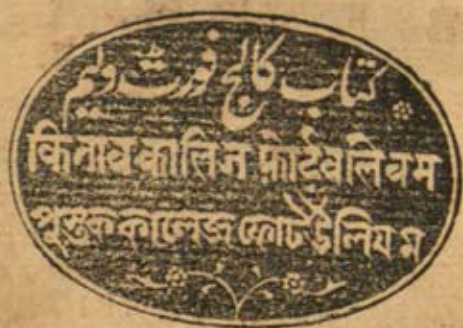 کتاب کالج فورٹ ولیم
किताब कालिज फोर्टवलियम
पुस्तक কালেজ ফোর্ট উলিয়ম